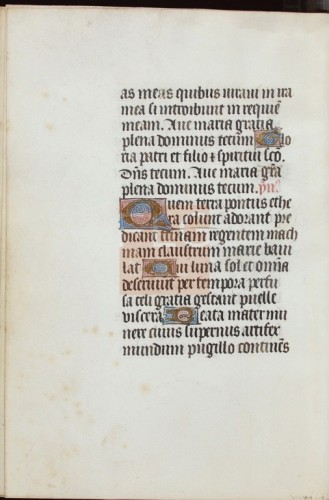 as meas quibus iuravi in ira
mea si introibunt in requiē
meam. Ave maria gratia
plena dominus tecum Glo
ria patri et filio & spiritui sco.
Dn̄s tecum. Ave maria grā
plena dominus tecum. ym̄.
Quem terra pontus ethe
era colunt adorant pre
dicant trinam regentem mach
inam claustrum marie baiu
lat Cui luna sol et omia
deserviut per tempora perfu
sa celi gratia gestant puelle
viscera Beata mater mu
nere cuius supernus artifex
mundum pugillo continēs